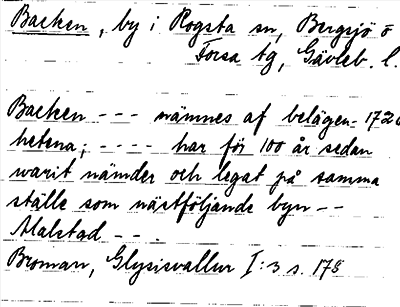 Backen, by i Rogsta sn, Bergsjö o
Forsa tg, Gävleb. l.
Backen --- nämnes af belägen- 1720
hetena; ---- har för 100 år sedan
warit nämder och legat på samma
ställe som nästföljande byn --
Alalstad --.
Broman, Glysisvallur I:3 s. 178